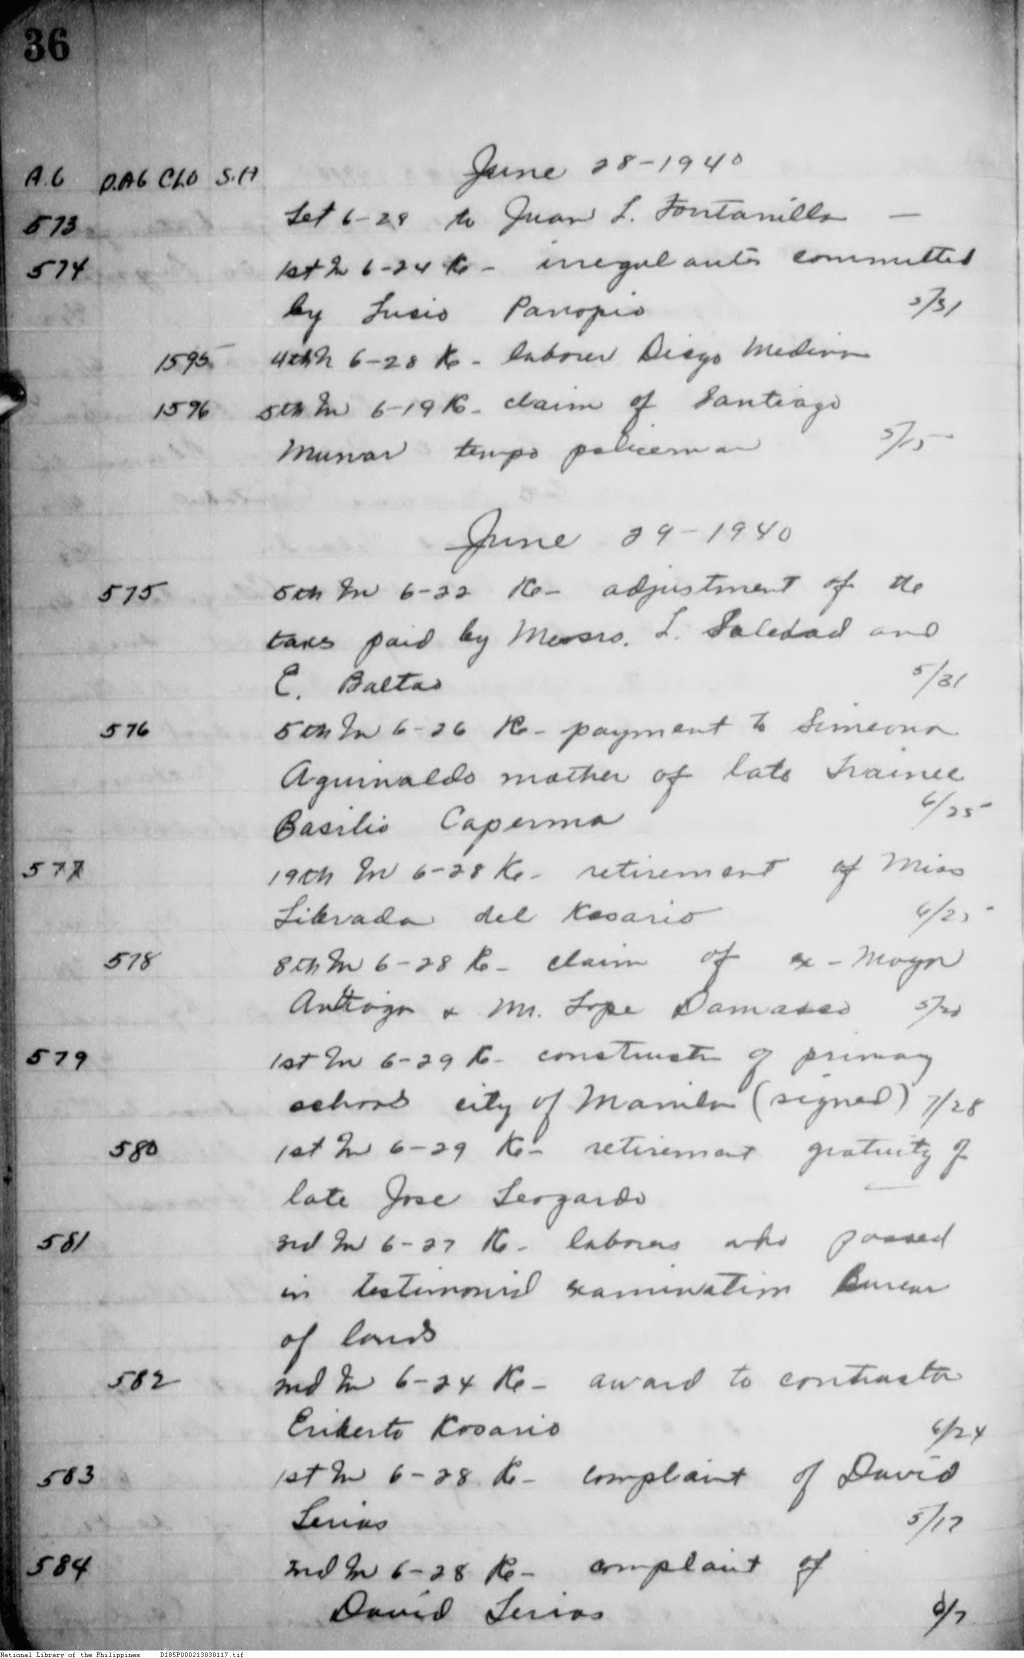 36
June 28-1940
A.G D.AG CLO S.H
573 Let 6-28 to Juan L. Fontanilla —
574 1st In 6-24 Re- irregularities committed
by Lucio Panopio 5/31
1595 4th In 6-28 Re- laborer Diego Medina
1596 5th In 6-19 Re- claim of Santiago
Munar tempo policeman 5/15
June 29-1940
575 5th In 6-22 Re- adjustment of the
taxes paid by Messrs. L. Soledad and
E. Baltao 5/31
576 5th In 6-26 Re- payment to Simeona
Aguinaldo mother of late Trainee
Basilio Caperma 6/25
577 19th In 6-28 Re- retirement of Miss
Librada del Rosario 6/25
578 8th In 6-28 Re- claim of ex-Mayor
& Mr. Lope Damasco 5/20
579 1st In 6-29 Re- constructn of primary
school city of Manila (signed) 7/28
580 1st In 6-29 Re- retirement gratuity of
late Jose Leogardo
581 3rd In 6-27 Re- laborers who passed
in testimonial examination Bureau
of lands
582 2nd In 6-24 Re- award to contractor
Eriberto Rosario 6/24
583 1st In 6-28 Re- complaint of David
Lerias 5/17
584 2nd In 6-28 Re- complaint of
David Lerias 6/7
National Library of the Philippines D185P000213830117.tif